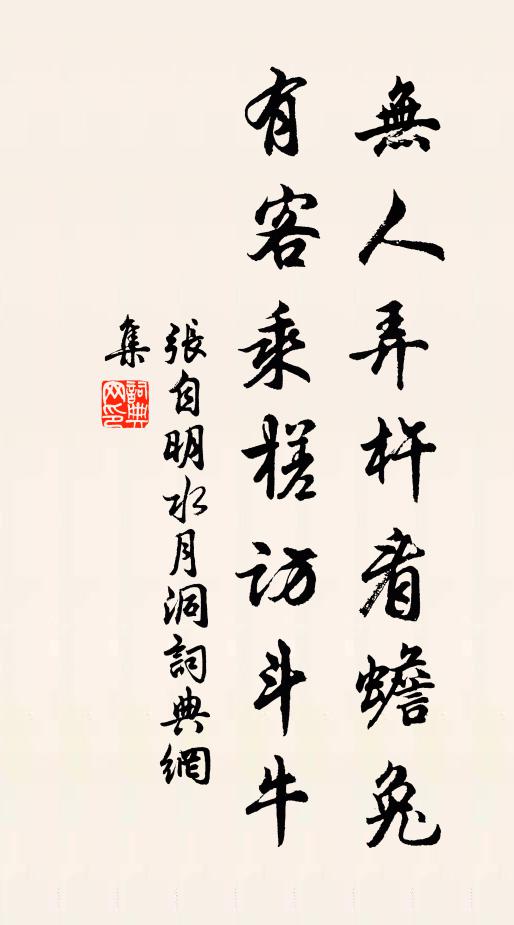 無人弄杵看蟾兔
有客乘槎訪斗牛
張自明水月洞詞典網
集
詞典網印